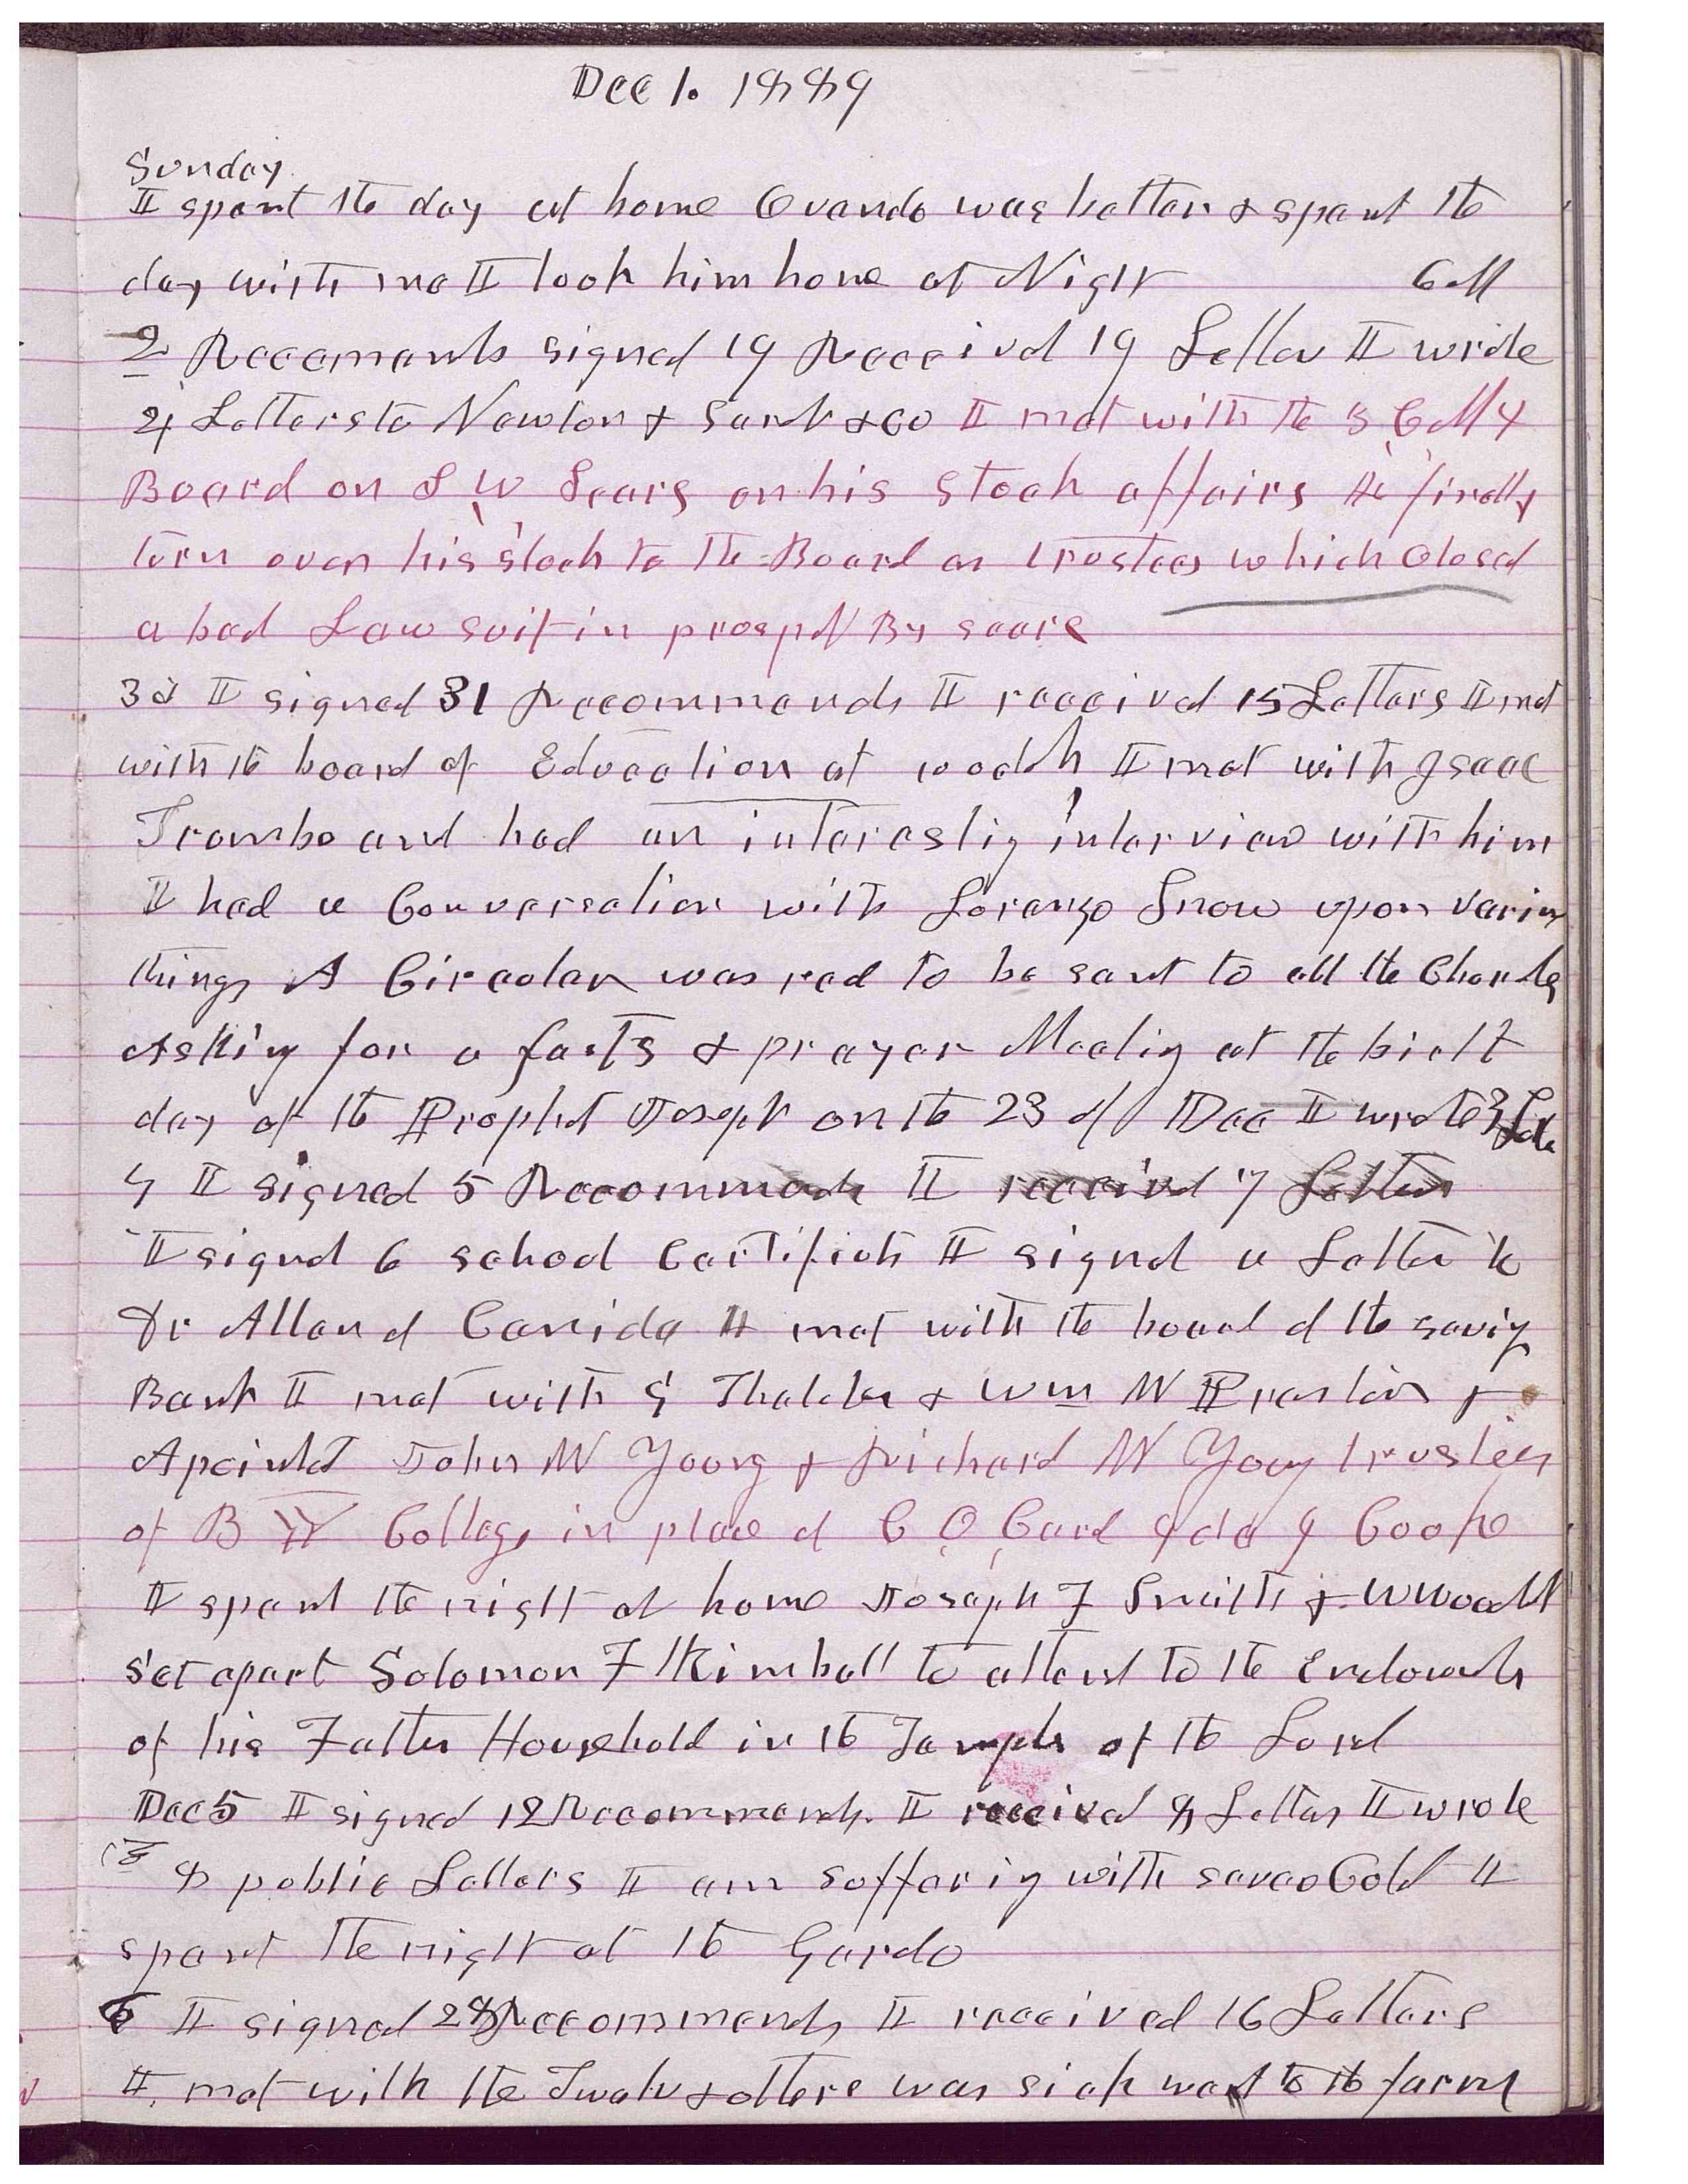 Dec 1. 1889
Sunday
I spent the day at home Ovando was better & spent the
day with me I took him home at Night 6 M
2 Reccomends signed 19 Received 19 Letter I wrote
4 Letters to Newton & Sarah &co I met with the Z C M I
Board on S W Sears on his stock affairs He finally
turn over his stock to the Board as trustees which Closed
a bad Law suit in prospet By sears
3d I signed 31 Recommends I received 15 Letters I met
with the board of Education at I met with Isaac
Trumbo and had an interestig interview with him
I had a Conversation with Lorenzo Snow upon varius
things A Circular was red to be sent to all the
Asking for a fasts & prayer Meetig at the birth
day of the Prophet Joseph on the 23 of Dec I wrote 3
4 I signed 5 Recommends I received 7 Letters
I signed 6 school Certificts I signed a Letter to
Dr Allen of I met with the board of the savig
Bank I met with G Thatcher & Wm W Preston &
Apointed John W Young & Richard W Young trustees
of B Y College in place of C O Card & Ida I Cook
I spent the night at home Joseph F Smith & W Woodff
set apart Solomon F Kimball to attend to the Endowmts
of his Father Household in the Temple of the Lord
Dec 5 I signed 12 Recommends I received 8 Letters I wrote
8 public Letters I am sufferig with severe Cold I
spent the night at the Gardo
6 I signed 28 Recommends I received 16 Letters
I met with the Twelv & others was sick went to the farm